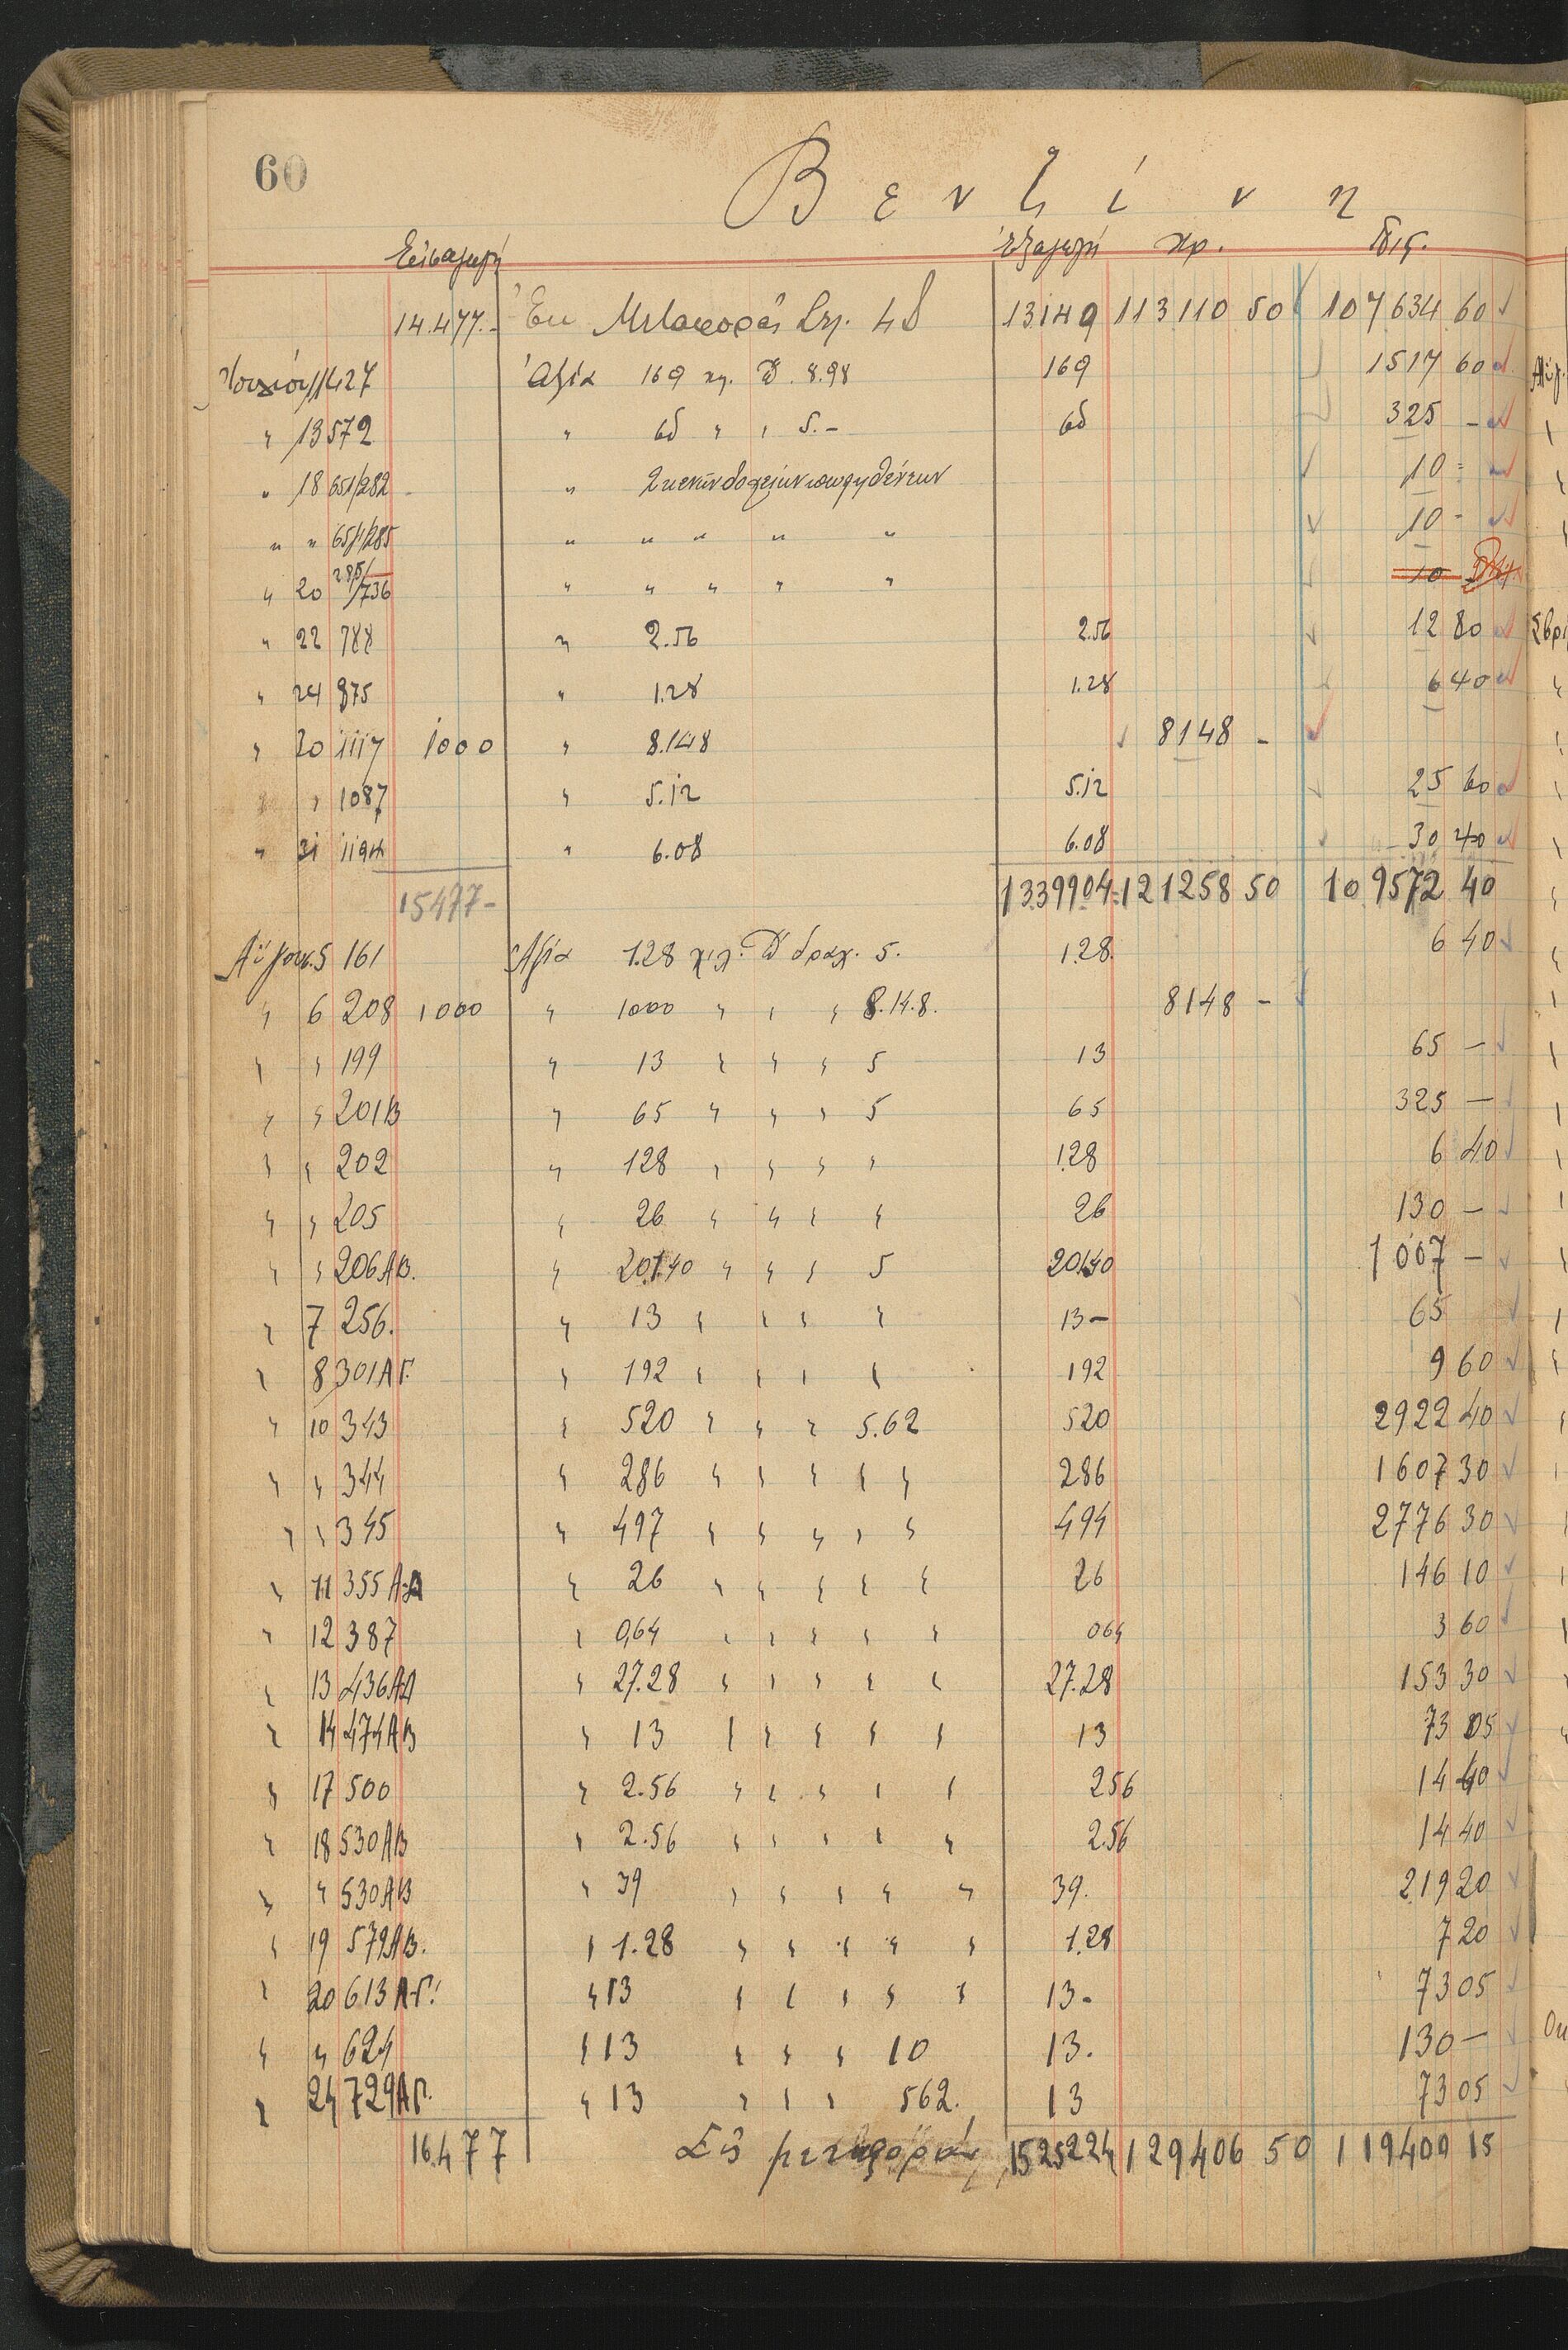 60
Βενζίνη
Εἰσαγωγή Ἐξαγωγή χρ. Πισ.
14.477.- Ἐκ Μεταφορᾶς Σελ. 48 13149 113110 50 107634 60
11 427 Ἀξία 169 χγ. 8.98 169 1517 60
" 13 572 " 65 " " 5.- 65 325 -
" 18 651/282 " 2 κενῶν δοχείων πωληθέντων 10 =
" " 651/285 " " " " " 10 -
" 20 285/736 " " " " " 10
" 22 788 " 2.56 2.56 12 80
" 24 875 " 1.28 1.28 6 40
" 20 1117 1000 " 8.148 8148 -
" " 1087 " 5.12 5.12 25 60
" 31 1194 " 6.08 6.08 30 40
15477- 1339904 121258 50 109572 40
Αὔγουσ. 5 161 Ἀξία 1.28 χιλ. δραχ. 5. 1.28. 6 40
" 6 208 1000 " 1000 " " " 8.14.8. 8148 -
" " 199 " 13 " " " 5 13 65 —
" " 201Β " 65 " " " 5 65 325 —
" " 202 " 128 " " " " 1.28 6 40
" " 205 " 26 " " " " 26 130 —
" " 206ΑΒ. " 201.40 " " " 5 201.40 1007 —
" 7 256. " 13 " " " " 13 — 65
" 8 301ΑΓ. " 192 " " " " 192 9 60
" 10 343 " 520 " " " 5.62 520 2922 40
" " 344 " 286 " " " " " 286 1607 30
" " 345 " 497 " " " " " 494 2776 30
" 11 355 Α-Δ " 26 " " " " " 26 146 10
" 12 387 " 0,64 " " " " " 064 3 60
" 13 436ΑΔ " 27.28 " " " " " 27.28 153 30
" 14 474ΑΒ " 13 " " " " " 13 73 05
" 17 500 " 2.56 " " " " " 256 14 40
" 18 530ΑΒ " 2.56 " " " " " 2.56 14 40
" " 530ΑΒ " 39 " " " " " 39. 219 20
" 19 579ΑΒ. " 1.28 " " " " " 1.28 7 20
" 20 613 Α-Γ. " 13 " " " " " 13- 73 05
" " 624 " 13 " " " 10 13. 130 —
" 24 729ΑΓ. " 13 " " " 562. 13 73 05
16.477 Εἰς μεταφοράν 1525224 129406 50 119400 15